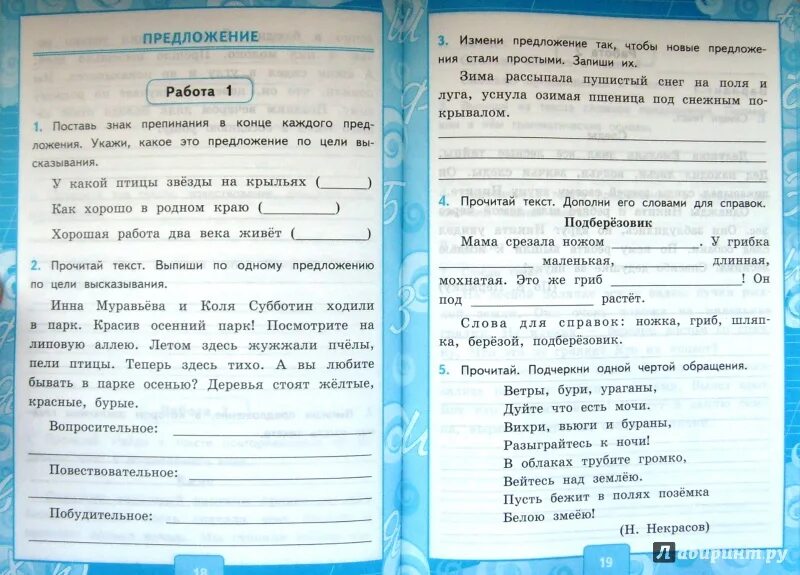 ПРЕДЛОЖЕНИЕ
Работа 1
1. Поставь знак препинания в конце каждого пред-
ложения. Укажи, какое это предложение по цели вы-
сказывания.
У какой птицы звёзды на крыльях (______)
Как хорошо в родном краю (______)
Хорошая работа два века живёт (______)
2. Прочитай текст. Выпиши по одному предложению
по цели высказывания.
Инна Муравьёва и Коля Субботин ходили
в парк. Красив осенний парк! Посмотрите на
липовую аллею. Летом здесь жужжали пчёлы,
пели птицы. Теперь здесь тихо. А вы любите
бывать в парке осенью? Деревья стоят жёлтые,
красные, бурые.
Вопросительное:
Повествовательное:
Побудительное:
18
3. Измени предложение так, чтобы новые предложе-
ния стали простыми. Запиши их.
Зима рассыпала пушистый снег на поля и
луга, уснула озимая пшеница под снежным по-
крывалом.
4. Прочитай текст. Дополни его словами для справок.
Подберёзовик
Мама срезала ножом ______. У грибка
______ маленькая, ______ длинная,
мохнатая. Это же гриб ______! Он
под ______ растёт.
Слова для справок: ножка, гриб, шляп-
ка, берёзой, подберёзовик.
5. Прочитай. Подчеркни одной чертой обращения.
Ветры, бури, ураганы,
Дуйте что есть мочи.
Вихри, вьюги и бураны,
Разыграйтесь к ночи!
В облаках трубите громко,
Вейтесь над землёю.
Пусть бежит в полях позёмка
Белою змеёю!
(Н. Некрасов)
19
Лабиринт.ру